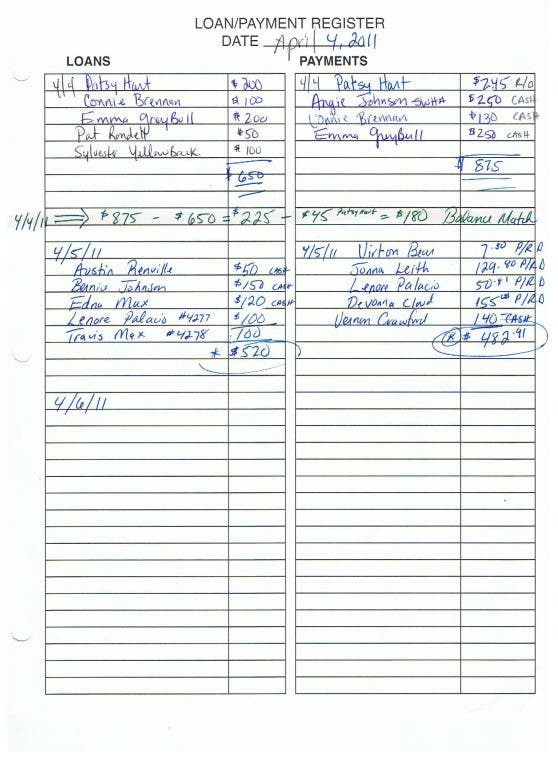 LOAN/PAYMENT REGISTER
DATE April 4, 2011
LOANS
4/4 Patsy Hart $200
Connie Brennan $100
Emma GreyBull $200
Pat Rondell $50
Sylvester Yellowback. $100
$650
PAYMENTS
4/4 Patsy Hart $245 R/O
Angie Johnson $250 CASH
Connie Brennan $130 CASH
Emma GreyBull $250 CASH
$875
4/4/11 ⟹ $875 - $650 = $225 - $45 Patsy Hart = $180 Balance Match
4/5/11
Austin Renville $50 CASH
Bennie Johnson $150 CASH
Edna Max $120 CASH
Lenore Palacio #4277 $100
Travis Max #4278 100
* $520
4/5/11 Virton Bear 7.30 P/R D
Jonna Leith 129.80 P/R D
Lenore Palacio 50.81 P/R D
Devonna Cloud 155.00 P/R D
Vernon Crawford 140 CASH
* $482.91
4/6/11